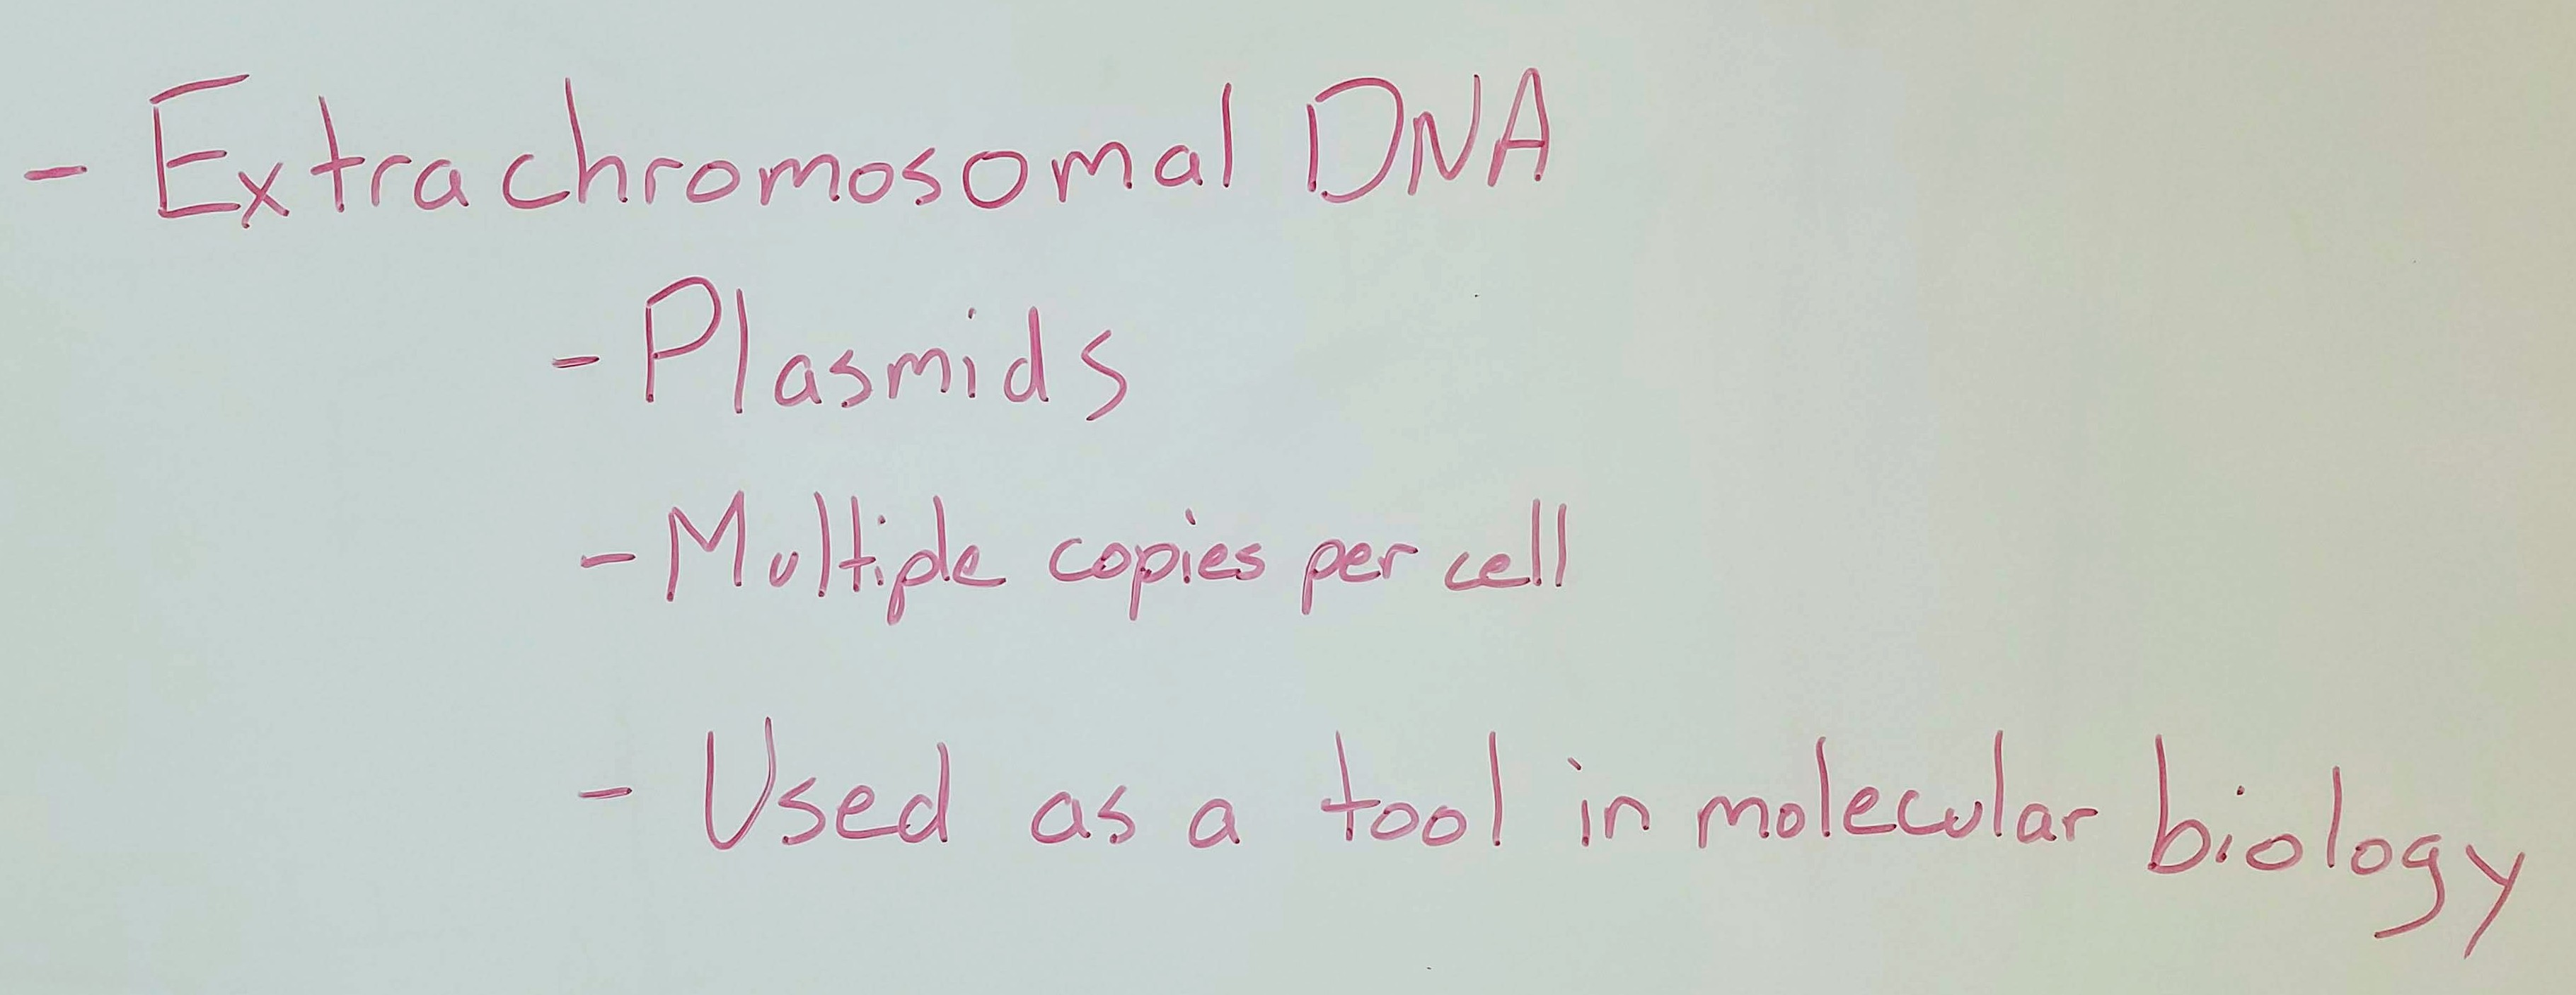 - Extrachromosomal DNA
- Plasmids
- Multiple copies per cell
- Used as a tool in molecular biology